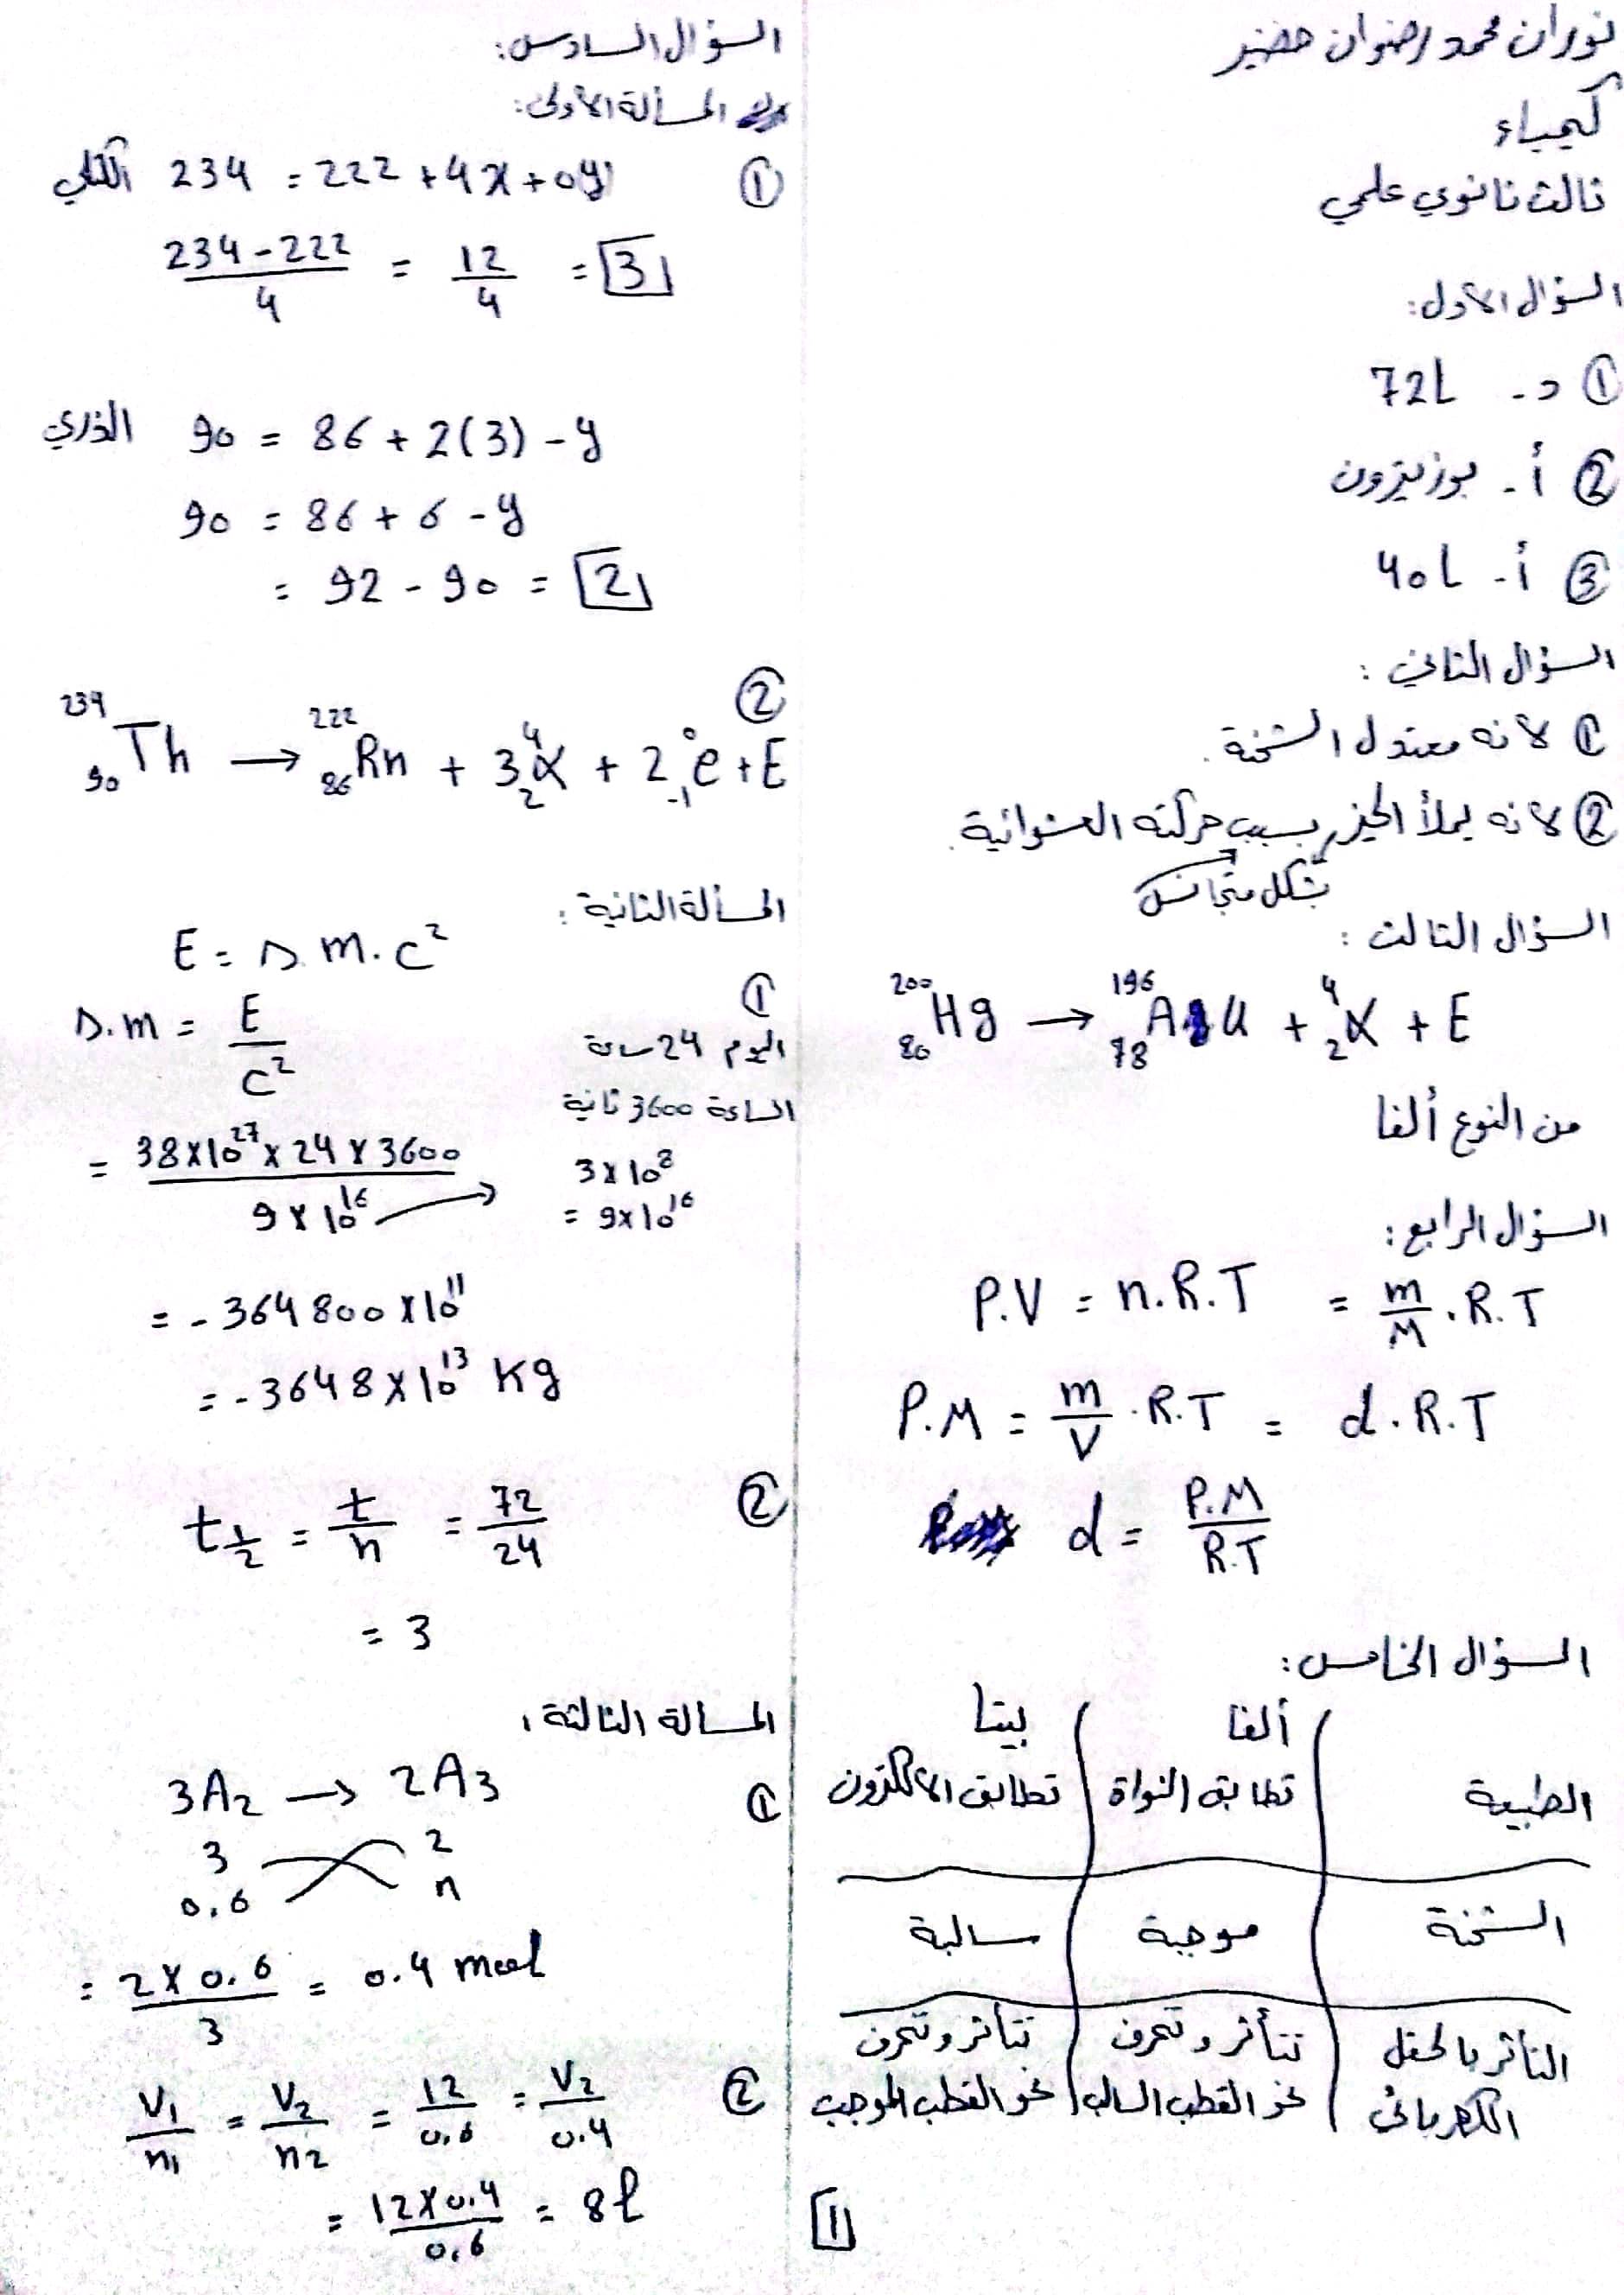 نوران محمد رضوان خضير
كيمياء
ثالث ثانوي علمي
السؤال الأول:
① د - 72L
② أ - بوزيترون
③ أ - 40L
السؤال الثاني :
① لأنه معتدل الشحنة .
② لأنه يملأ الحيز بسبب حركته العشوائية .
بشكل متجانس
السؤال الثالث :
²⁰⁰₈₀Hg → ¹⁹⁶₇₈Au + ⁴₂α + E
من النوع ألفا
السؤال الرابع :
P.V = n.R.T = m/M . R.T
P.M = m/V . R.T = d . R.T
d = P.M / R.T
السؤال الخامس :
ألفا بيتا
الطبيعة تطابق النواة تطابق الالكترون
الشحنة موجبة سالبة
التأثر بالحقل الكهربائي تتأثر وتنحرف نحو القطب السالب تتأثر وتنحرف نحو القطب الموجب
1
السؤال السادس :
المسألة الأولى :
① 234 = 222 + 4x + 0y الكتلي
(234 - 222) / 4 = 12/4 = 3
90 = 86 + 2(3) - y الذري
90 = 86 + 6 - y
= 92 - 90 = 2
②
²³⁴₉₀Th → ²²²₈₆Rn + 3⁴₂α + 2⁰₋₁e + E
المسألة الثانية :
E = Δ.m.c²
①
Δ.m = E / c²
اليوم 24 ساعة
الساعة 3600 ثانية
= 38×10²⁷ × 24 × 3600 / 9×10¹⁶
3×10⁸
= 9×10¹⁶
= - 364800×10¹¹
= - 3648×10¹³ Kg
② t½ = t/n = 72/24
= 3
المسالة الثالثة :
① 3A₂ → 2A₃
3 2
0.6 n
= 2×0.6 / 3 = 0.4 mol
② V₁/n₁ = V₂/n₂ = 12/0.6 = V₂/0.4
= 12×0.4 / 0.6 = 8l